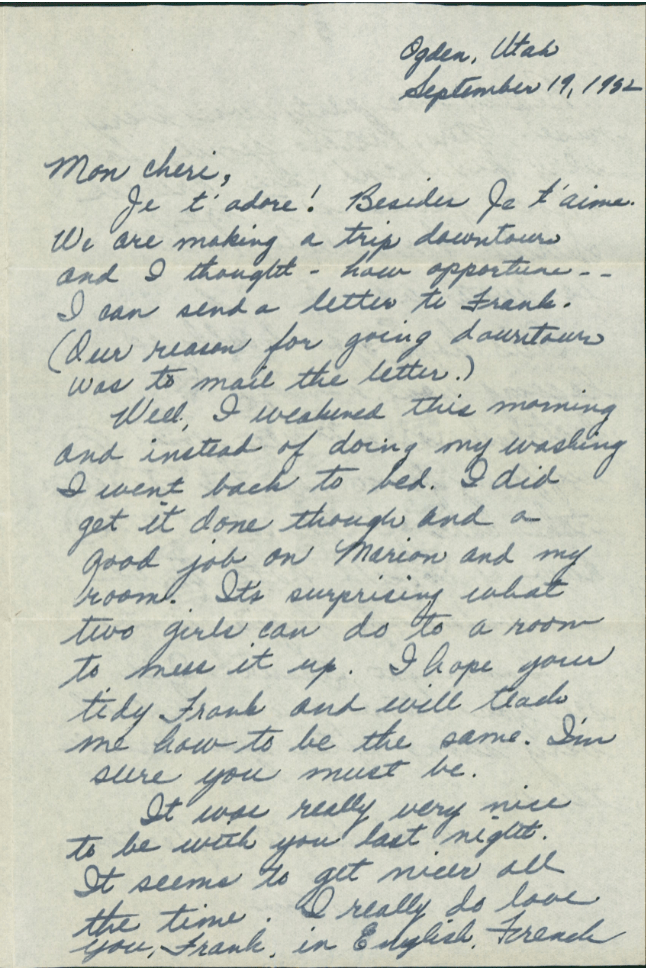 Ogden, Utah
September 19, 1952
Mon cheri,
Je t'adore! Besides Je t'aime.
We are making a trip downtown
and I thought - how opportune --
I can send a letter to Frank.
(Our reason for going downtown
was to mail the letter.)
Well, I weakened this morning
and instead of doing my washing
I went back to bed. I did
get it done though and a
good job on Marion and my
room. It's surprising what
two girls can do to a room
to mess it up. I hope your
tidy Frank and will teach
me how to be the same. I'm
sure you must be.
It was really very nice
to be with you last night.
It seems to get nicer all
the time. I really do love
you, Frank, in English, French